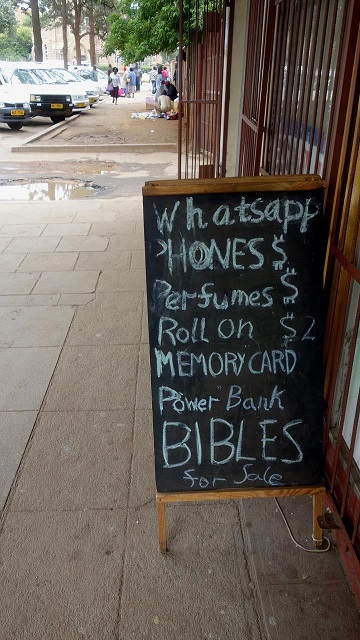 Whatsapp
PHONES $
Perfumes $
Roll on $2
MEMORY CARD
Power Bank
BIBLES
for Sale